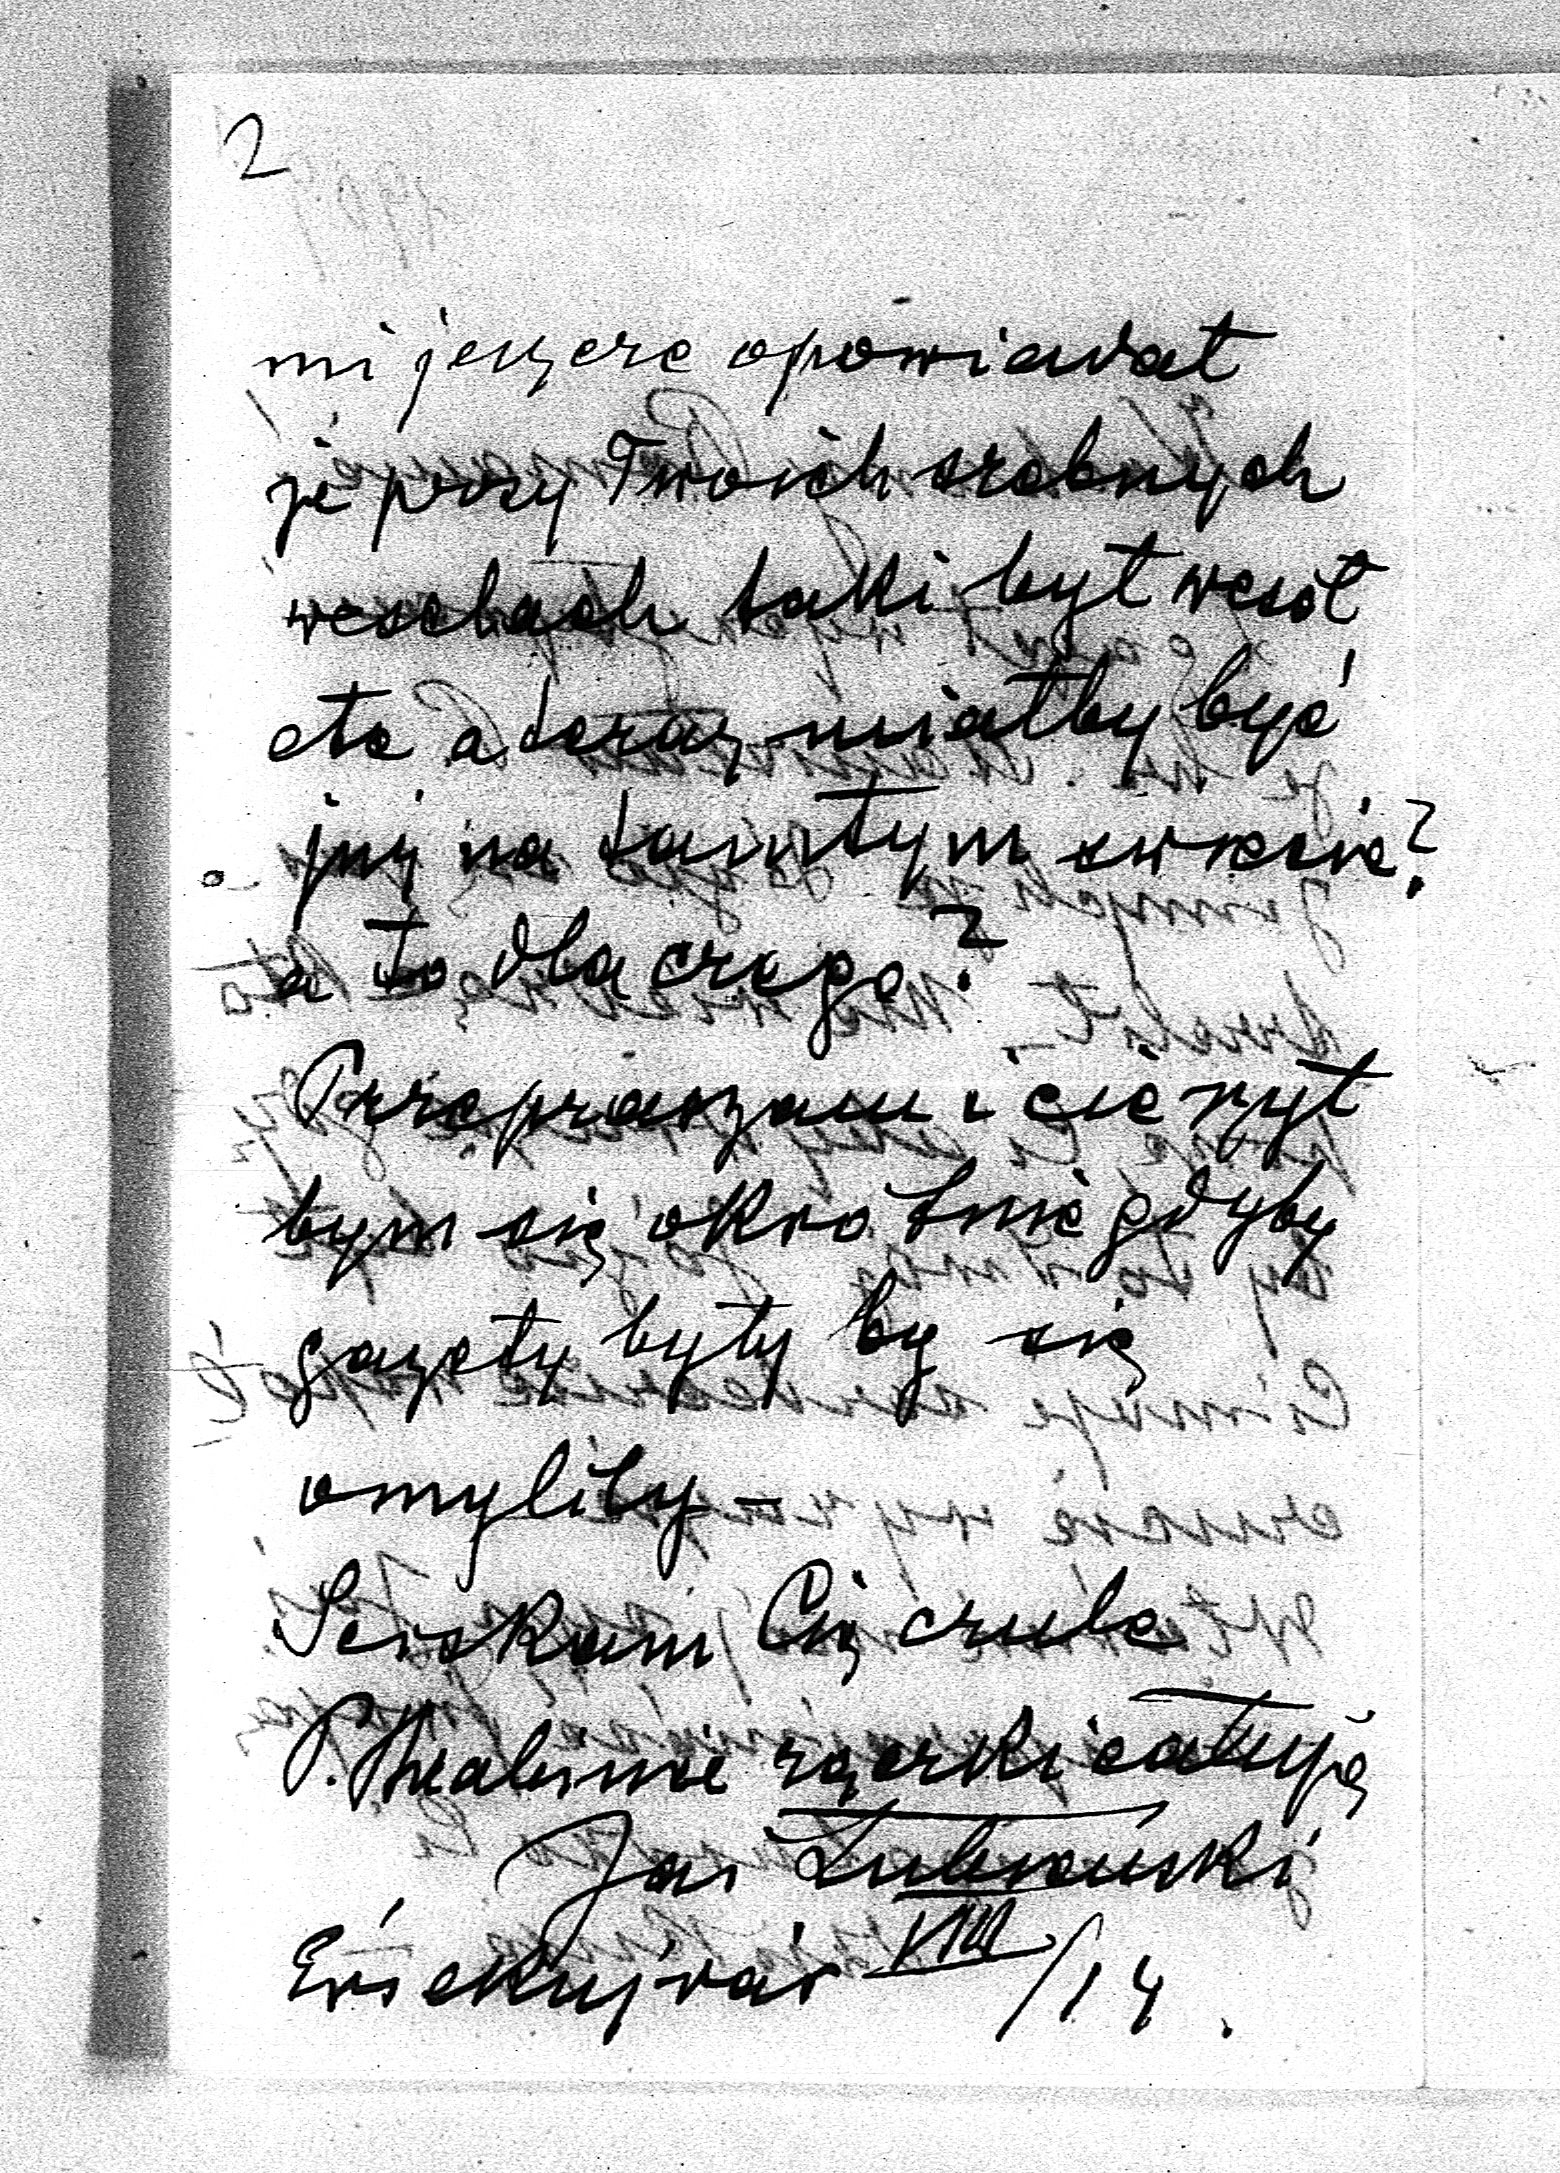 2
mi jeszcze opowiadał
że przy Twoich srebnych
weselach taki był wesół
etc a teraz miałby być
już na tamtym świecie?
a to dla czego?
Przepraszam i cieszył
bym się okrotnie gdyby
gazety były by się
omyliły –
Sciskam Cię czule
P. Hrabinie rączki całuję
Jan Lubieński
Érsekujvár VIII/14.